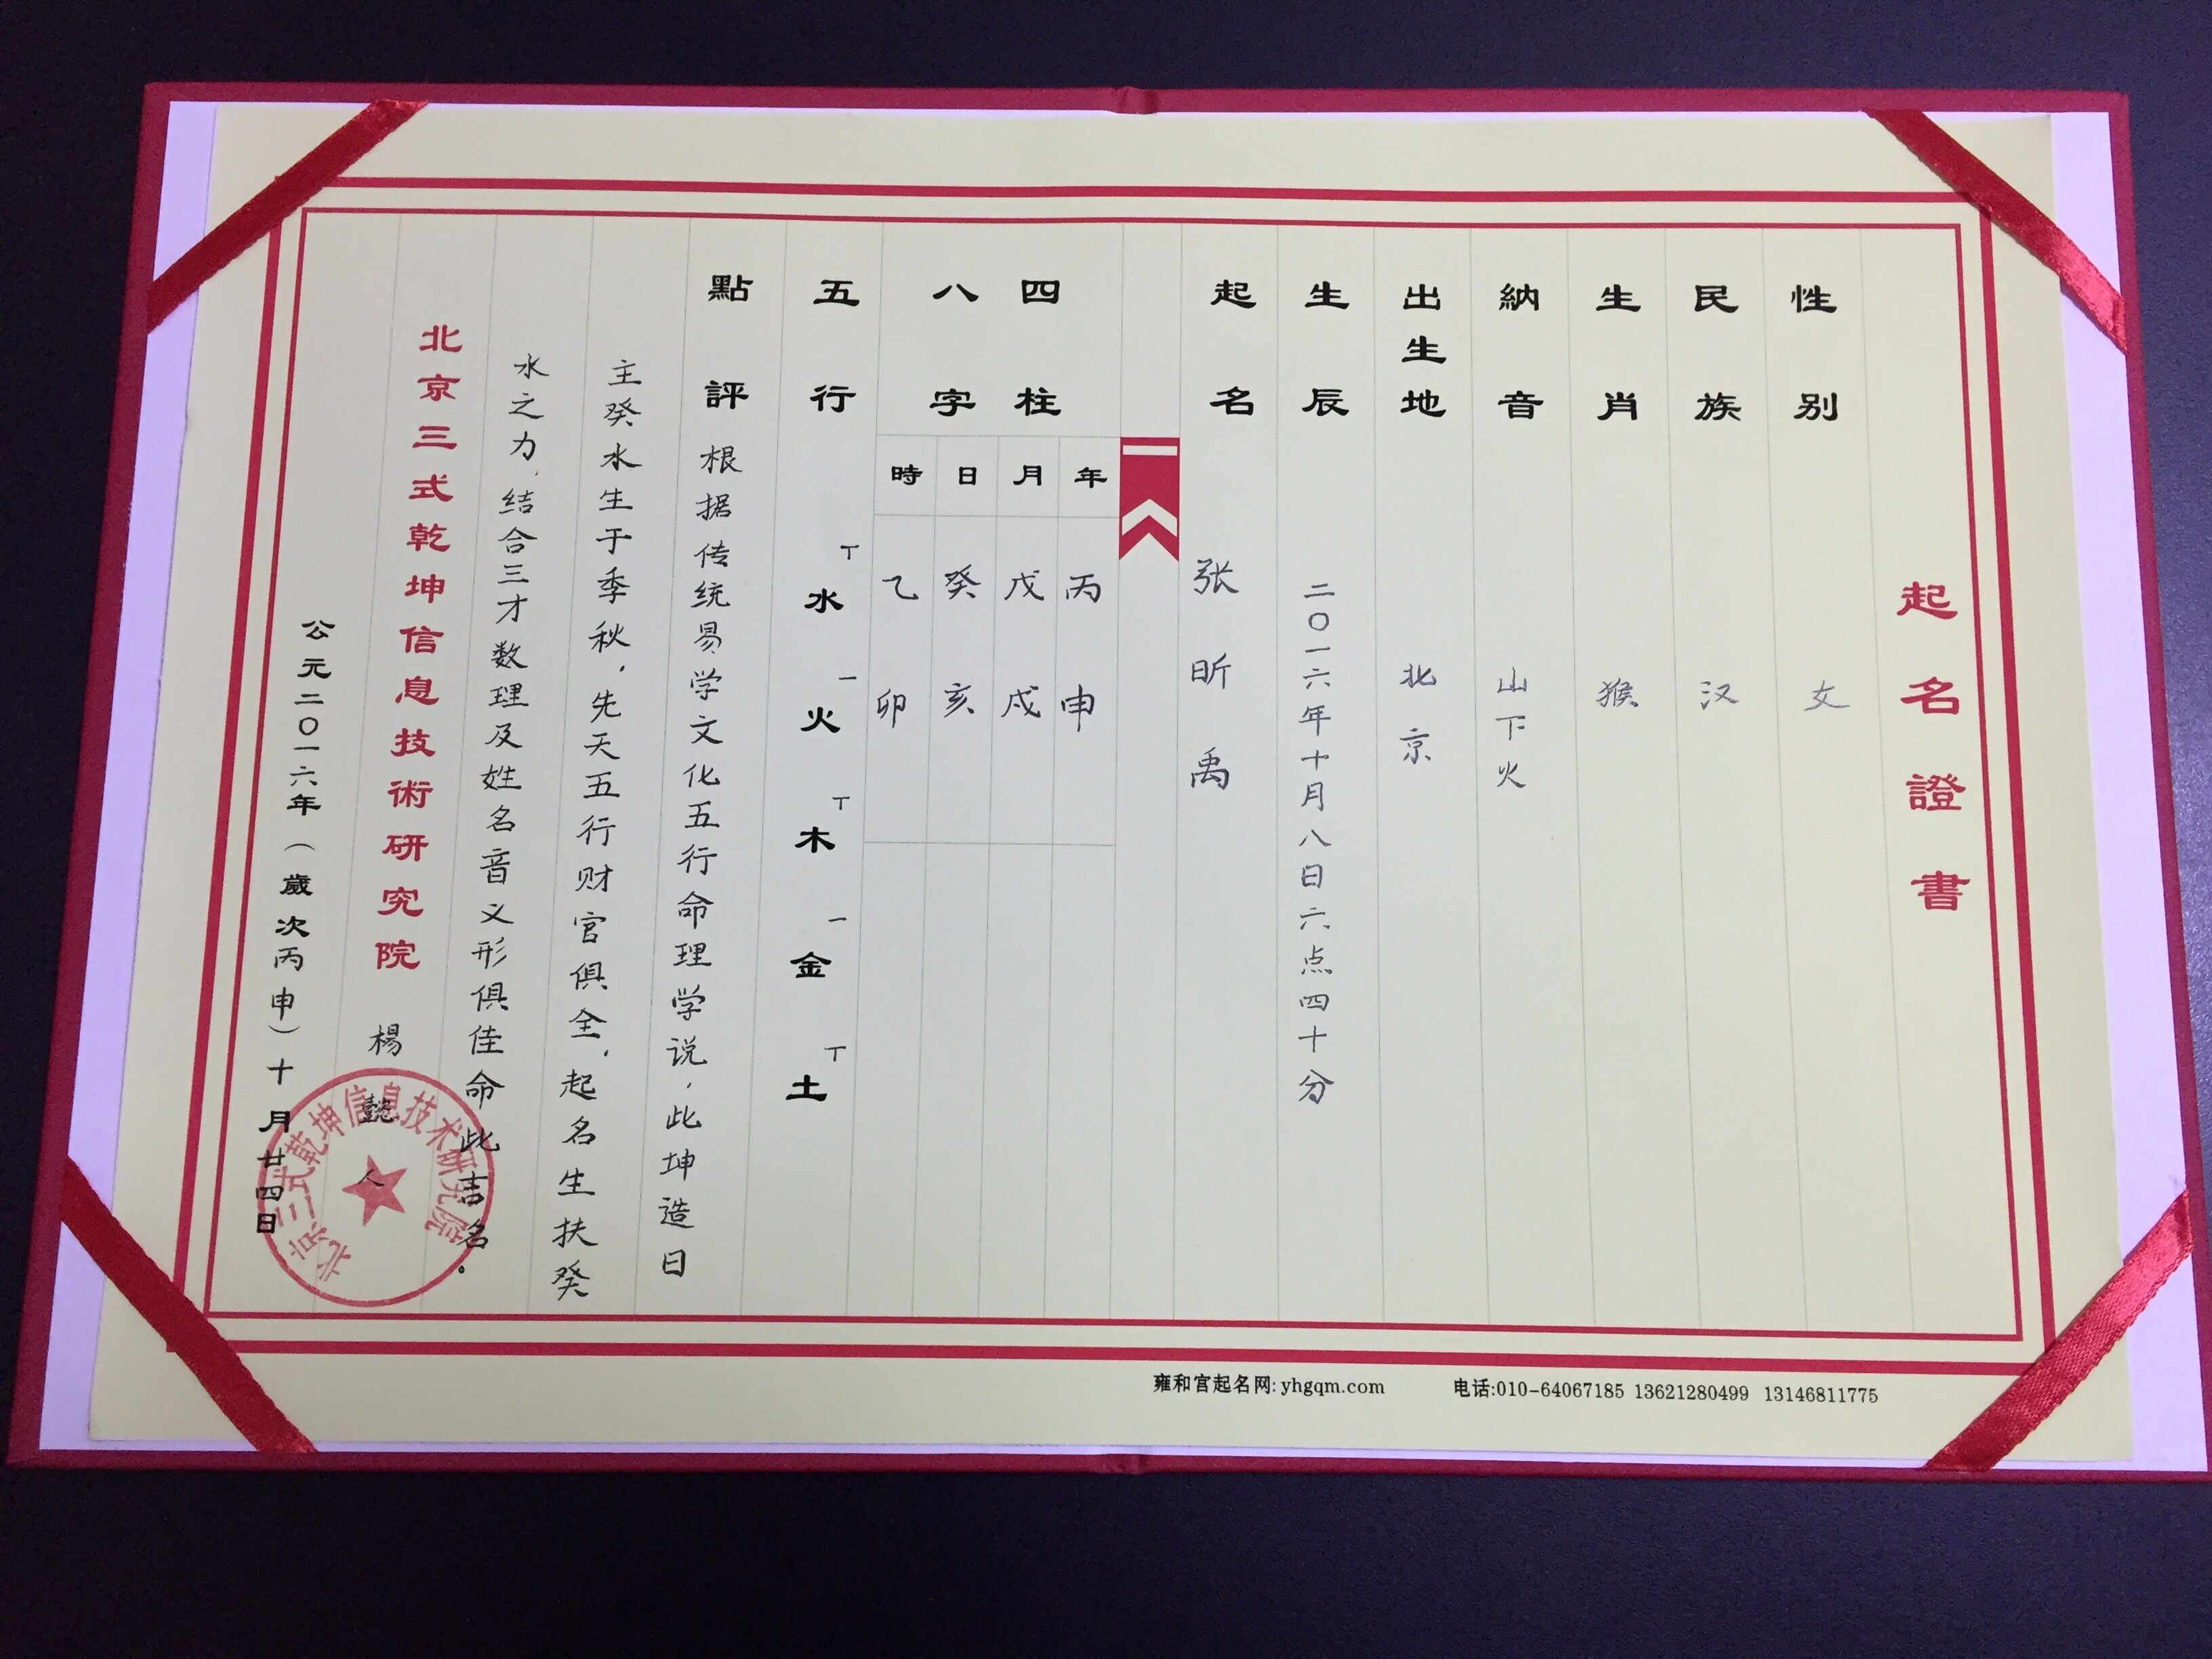 起名證書
性別 女
民族 汉
生肖 猴
納音 山下火
出生地 北京
生辰 二〇一六年十月八日六点四十分
起名 张昕禹
四柱
八字
年 丙申
月 戊戌
日 癸亥
時 乙卯
五行 丅水 一火 丅木 一金 丅土
點評 根据传统易学文化五行命理学说,此坤造日
主癸水生于季秋,先天五行财官俱全,起名生扶癸
水之力,结合三才数理及姓名音义形俱佳命此吉名。
北京三式乾坤信息技術研究院 楊懿人
公元二〇一六年(歲次丙申)十月廿四日
北京三式乾坤信息技术研究院
雍和宫起名网: yhgqm.com 电话:010-64067185 13621280499 13146811775